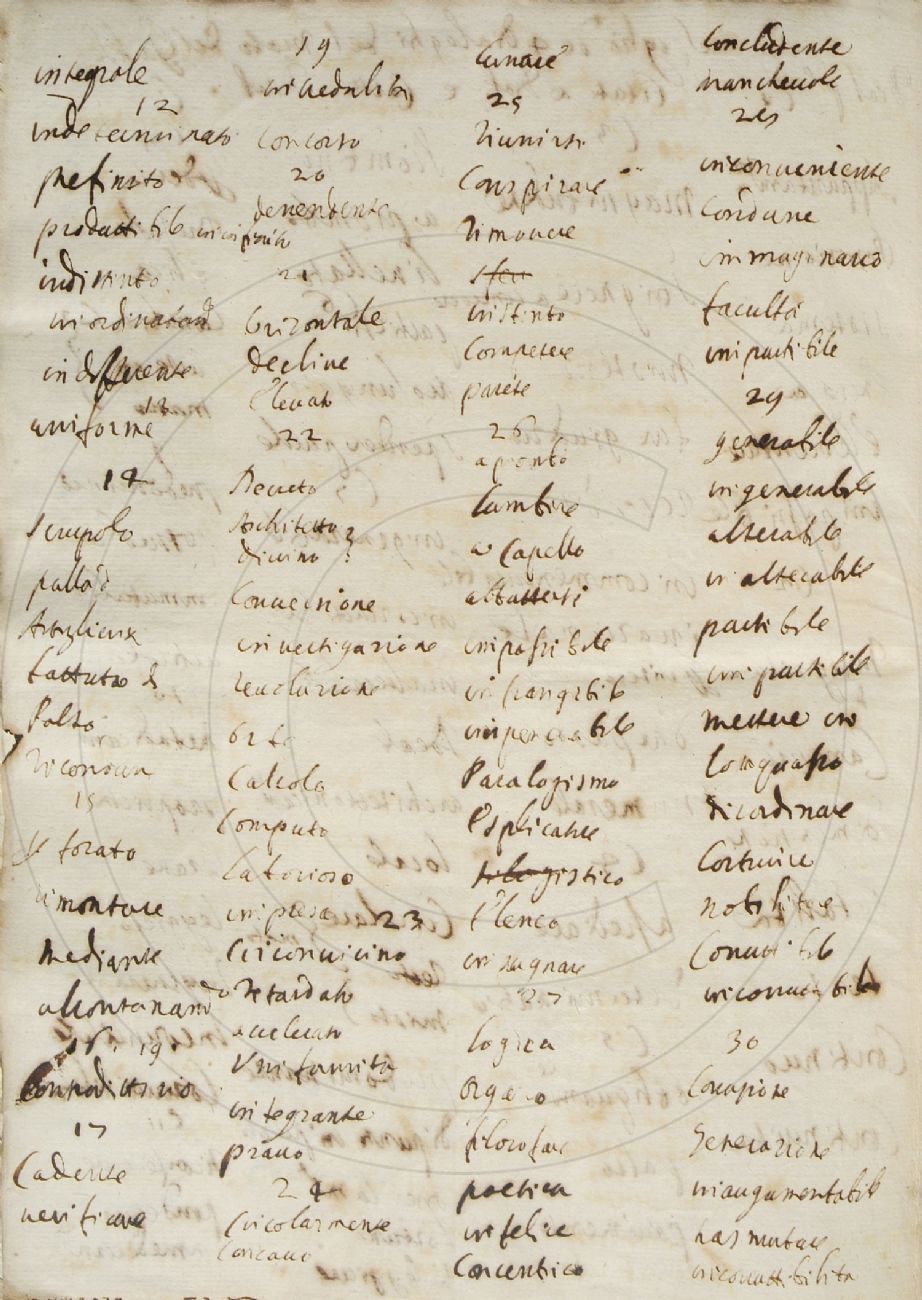 integrale
12
indeterminato
prefinito
produttibile
indistinto
inordinatamte
indifferente
13
uniforme
14
scrupolo
palla d
Artiglieria
battuta di
Polso
15
sforato
rimontare
mediante
alontanando
16. 19.
Contradittorio
17
Cadente
verificare
19
incredulità
Concorso
20
dependente
incipinto
21
Orizontale
declive
Elevato
22
Decreto
Architetto
divino
Conversione
investigazione
revoluzione
orto
Calcolo
Computo
laborioso
impresa 23
Circonvicino
Retardato
accelerato
Uniformità
integrante
pravo
24
Circolarmente
Concavo
lunare
25
Riunirsi
Conspirare
Rimovere
sfer
instinto
Competere
parete
26
apronto
lambire
a Capello
abbattersi
impossibile
infrangibile
impenetrabile
Paralogismo
Esplicatore
silogistico
Elenco
insegnare
27
logica
Organo
filosofare
poetica
infelice
Concentrico
Concludente
Manchevole
28
inconveniente
Condurre
immaginario
facultà
impartibile
29
generabile
ingenerabile
alterabile
inalterabile
partibile
impartibile
mettere in
Conquasso
disordinare
Costruire
nobilitare
Conuttibile
inconuttibile
30
Corruzione
Generazione
inaugumentabile
trasmutare
inconuttibilità